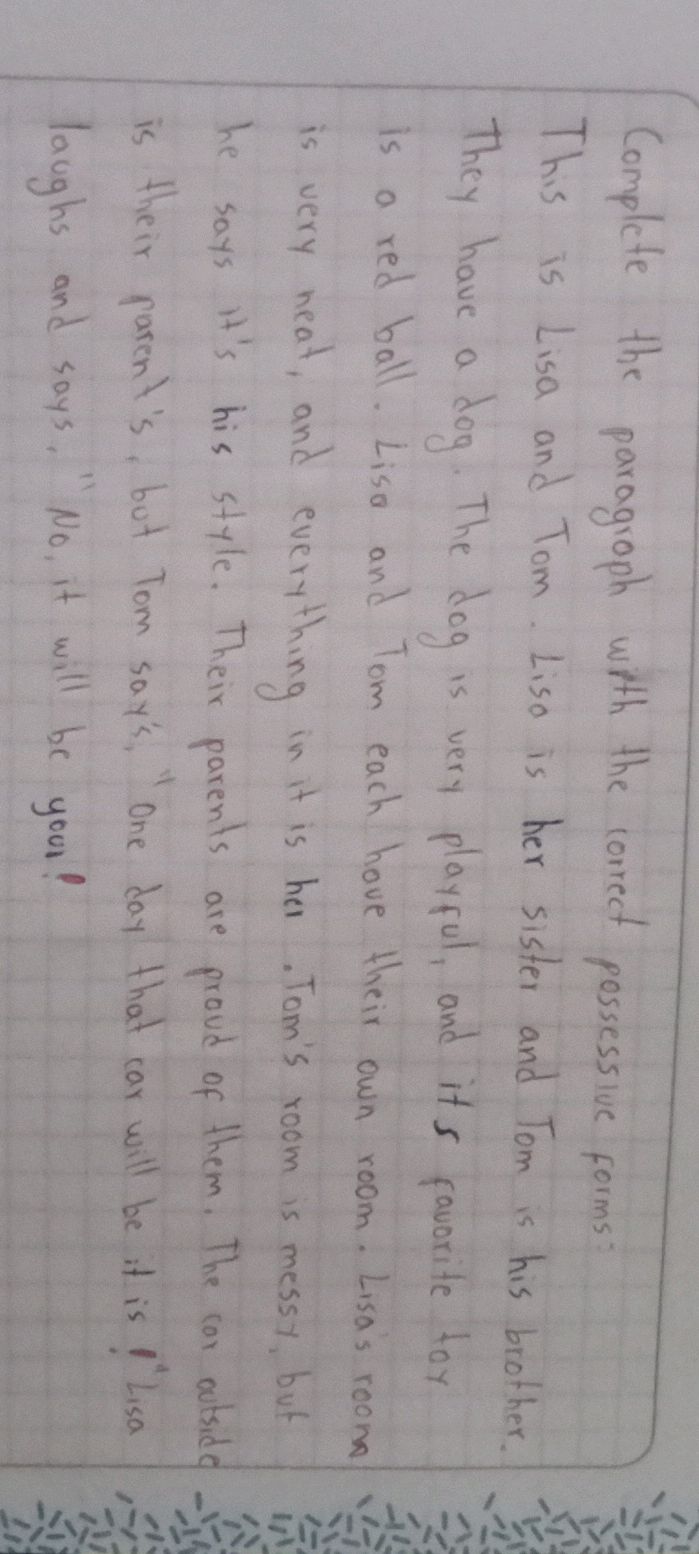 Complete the paragraph with the correct possessive forms:
This is Lisa and Tom. Lisa is her sister and Tom is his brother.
They have a dog. The dog is very playful, and it's favorite toy
is a red ball. Lisa and Tom each have their own room. Lisa's room
is very neat, and everything in it is her. Tom's room is messy, but
he says it's his style. Their parents are proud of them. The car outside
is their parent's, but Tom say's, "One day that car will be it is!" Lisa
laughs and says, "No, it will be your!